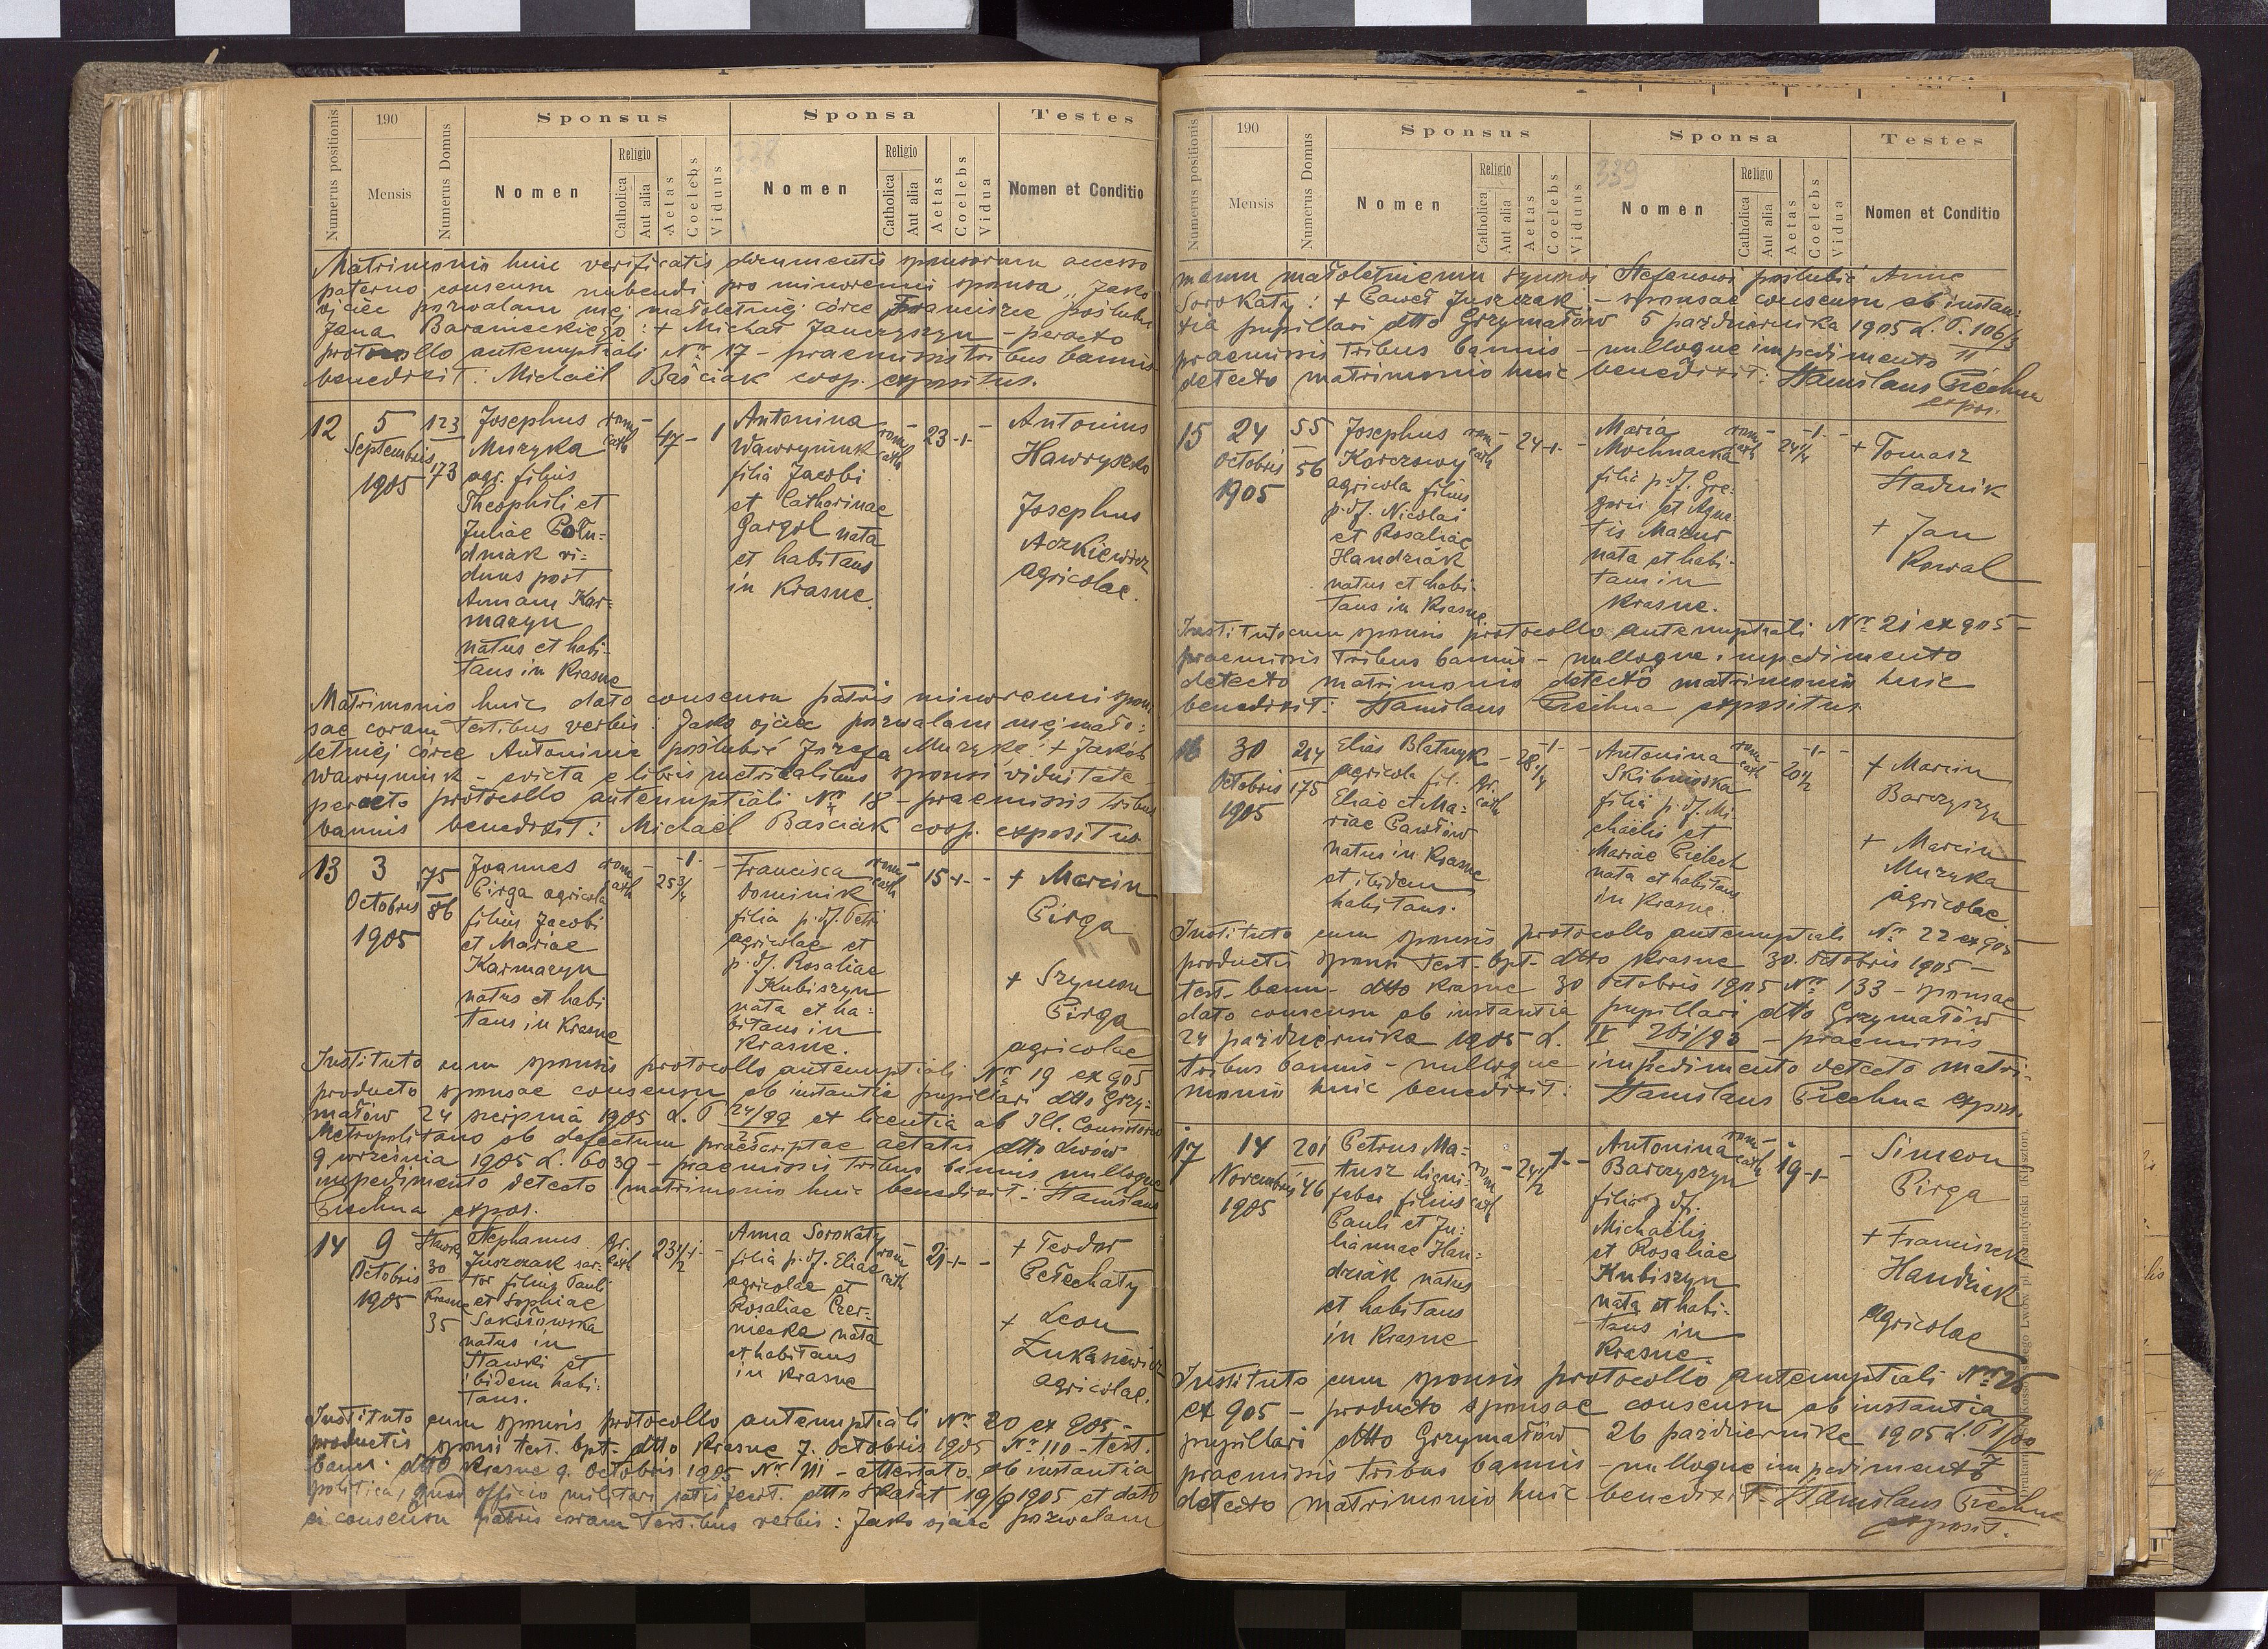 Numerus positionis
190
Mensis
Numerus Domus
Sponsus
Nomen
Religio
Catholica
Aut alia
Aetas
Coelebs
Viduus
Sponsa
Nomen
Religio
Catholica
Aut alia
Aetas
Coelebs
Vidua
Testes
Nomen et Conditio
Matrimonio huic verificatis documentis sponsorum accesso
paterno consensu nubendi pro minorenni sponsa „Jako
ojciec pozwalam mej małoletniej córce Franciszce poślubić
Jana Baranieckiego: + Michał Janczyszyn – peracto
protocollo antenuptiali Nr 17 – praemissis tribus bannis
benedixit: Michaël Baściak coop. expositus.
12
5
Septembris
1905
123
173
Josephus
Muzyka
agr. filius
Theophili et
Juliae Połu-
dniak vi-
duus post
Annam Kar-
mazyn
natus et habi-
tans in Krasne
rom.
cath
47 - 1
Antonina
Wawryniuk
filia Jacobi
et Catharinae
Gargol nata
et habitans
in Krasne.
rom
cath
23 -1- -
Antonius
Hawryszko
Josephus
Aczkiewicz
agricolae.
Matrimonio huic dato consensu patris minorenni spon-
sae coram testibus verbis: Jako ojciec pozwalam mej mało-
letniej córce Antoninie poślubić Józefa Muzykę: + Jakób
Wawryniuk – evicta e libris metricalibus sponsi viduitate –
peracto protocollo antenuptiali Nr 18 – praemissis tribus
bannis benedixit: Michaël Baściak coop. expositus.
13
3
Octobris
1905
75
86
Joannes
Pirga agricola
filius Jacobi
et Mariae
Karmazyn
natus et habi
tans in Krasne
rom
cath
25 3/4
-1-
Francisca
Dominik
filia p. df. Petri
agricolae et
p. df. Rosaliae
Kubiszyn
nata et ha-
bitans in
Krasne.
rom
cath
15 -1- -
+ Marcin
Pirga
+ Szymon
Pirga
agricolae
Instituto cum sponsis protocollo antenuptiali Nr 19 ex 905
producto sponsae consensu ab instantia pupillari dtto Grzy-
małów 24 sierpnia 1905 L. P 24/99 25 et licentia ab Ill. Consistorio
Metropolitano ob defectum praescriptae aetatis dtto Lwów
9 września 1905 L. 6039 – praemissis tribus bannis nulloque
impedimento detecto matrimonio huic benedixit: Stanislaus
Piechna expos.
14
9
Octobris
1905
Stawki
30
Krasne
35
Stephanus
Juszczak sar-
tor filius Pauli
et Sophiae
Sokołowska
natus in
Stawki et
ibidem habi-
tans.
gr.
cath
23 1/2
-1- -
Anna Sorokaty
filia p. df. Eliae
agricolae et
Rosaliae Czer-
niecka nata
et habitans
in Krasne
rom
cath
21 -1- -
+ Teodor
Pełechaty
+ Leon
Łukasiewicz
agricolae.
Instituto cum sponsis protocollo antenuptiali Nr 20 ex 905 –
productis sponsi test. bpt. dtto Krasne 7. Octobris 1905 Nr 110 – test.
bann. dtto Krasne 9. Octobris 1905 Nr 111 – attestato ab instantia
politica, quod officio militari satisfecit. dtto Skałat 19/9 1905 et dato
ei consensu patris coram testibus verbis: Jako ojciec pozwalam
Numerus positionis
190
Mensis
Numerus Domus
Sponsus
Nomen
Religio
Catholica
Aut alia
Aetas
Coelebs
Viduus
Sponsa
339
Nomen
Religio
Catholica
Aut alia
Aetas
Coelebs
Vidua
Testes
Nomen et Conditio
memu małoletniemu synowi Stefanowi poślubić Annę
Sorokaty: + Paweł Juszczak – sponsae consensu ab instan-
tia pupillari dtto Grzymałów 5 października 1905 L. P. 106/3 11
praemissis tribus bannis – nulloque impedimento
detecto matrimonio huic benedixit: Stanislaus Piechna
expos.
15
24
Octobris
1905
55
56
Josephus
Karczowy
agricola filius
p. df. Nicolai
et Rosaliae
Handziak
natus et habi-
tans in Krasne
rom
cath
24 -1- -
Maria
Mochnacka
filia p. df. Gre-
gorii et Agne-
tis Mazur
nata et habi-
tans in
Krasne.
rom
cath
24 1/4
-1- -
+ Tomasz
Stadnik
+ Jan
Kowal
Instituto cum sponsis protocollo antenuptiali Nr 21 ex 905 –
praemissis tribus bannis – nulloque impedimento
detecto matrimonio detecto matrimonio huic
benedixit: Stanislaus Piechna expositus.
16
30
Octobris
1905
214
175
Elias Blatnyk
agricola fil.
Eliae et Ma-
riae Pawłów
natus in Krasne
et ibidem
habitans.
gr.
cath
28 1/4
-1- -
Antonina
Skibniowska
filia p. df. Mi-
chaëlis et
Mariae Pielech
nata et habitans
in Krasne.
rom
cath
20 1/2
-1- -
+ Marcin
Barczyszyn
+ Marcin
Muzyka
agricolae
Instituto cum sponsis protocollo antenuptiali Nr 22 ex 905
productis sponsi test. bpt. dtto Krasne 30. Octobris 1905 –
test. bann. dtto Krasne 30 Octobris 1905 Nr 133 – sponsae
dato consensu ab instantia pupillari dtto Grzymałów
24 października 1905 L. IV 201/93 – praemissis
tribus bannis – nulloque impedimento detecto matri-
monio huic benedixit: Stanislaus Piechna expos.
17
14
Novembris
1905
201
46
Petrus Ma-
tusz ligni-
faber filius
Pauli et Ju-
liannae Han-
dziak natus
et habitans
in Krasne
rom
cath
24 1/2
-1- -
Antonina
Barczyszyn
filia p. df.
Michaëlis
et Rosaliae
Kubiszyn
nata et habi-
tans in
Krasne.
rom
cath
19 -1- -
Simeon
Pirga
+ Franciszek
Handziak
agricolae
Instituto cum sponsis protocollo antenuptiali Nr 26
ex 905 – producto sponsae consensu ab instantia
pupillari dtto Grzymałów 26 października 1905 L. P 1/00 7
praemissis tribus bannis – nulloque impedimento
detecto matrimonio huic benedixit: Stanislaus Piechna
exposit.